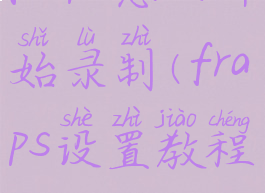 shǐ lù zhì
始录制(fra
shè zhì jiào chéng
ps设置教程